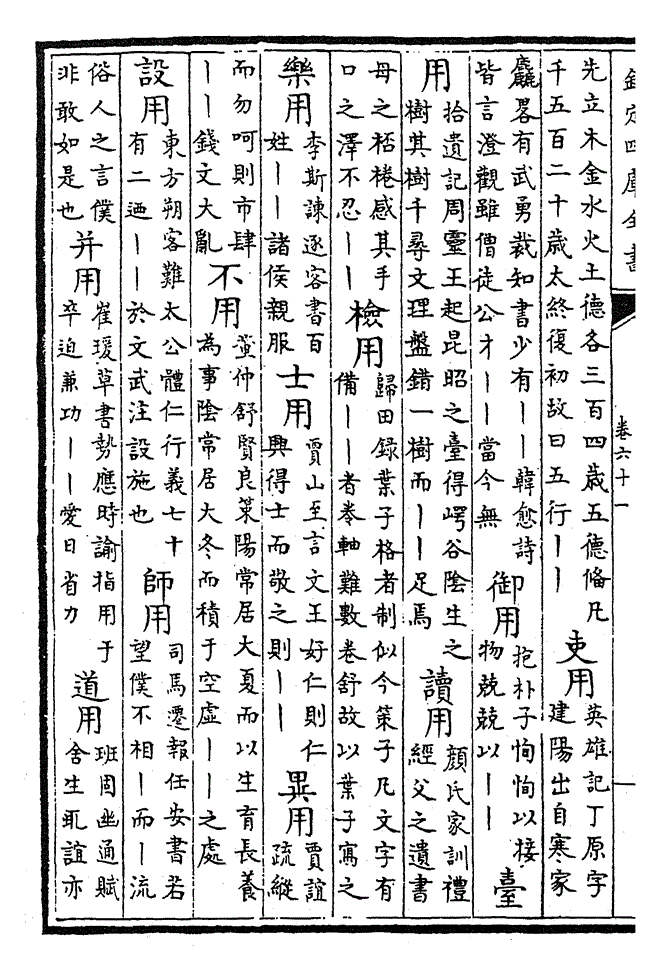 欽定四庫全書
卷六十一
先立木金水火土德各三百四歲五德備凡千五百二十歲太終復初故曰五行丨丨 吏用 英雄記丁原字建陽出自寒家
麤畧有武勇裁知書少有丨丨韓愈詩皆言澄觀雖僧徒公才丨丨當今無 御用 抱朴子恂恂以接物兢兢以丨丨 臺
用 拾遺記周靈王起昆昭之臺得崿谷陰生之樹其樹千尋文理盤錯一樹而丨丨足焉 讀用 顏氏家訓禮經父之遺書
母之桮棬感其手口之澤不忍丨丨 檢用 歸田錄葉子格者制似今策子凡文字有備丨丨者卷軸難數卷舒故以葉子寫之
樂用 李斯諫逐客書百姓丨丨諸侯親服 士用 賈山至言文王好仁則仁興得士而敬之則丨丨 異用 賈誼疏縱
而勿呵則市肆丨丨錢文大亂 不用 董仲舒賢良策陽常居大夏而以生育長養為事陰常居大冬而積于空虛丨丨之處
設用 東方朔客難太公體仁行義七十有二廼丨丨於文武注設施也 師用 司馬遷報任安書若望僕不相丨而丨流
俗人之言僕非敢如是也 并用 崔瑗草書勢應時諭指用于卒迫兼功丨丨愛日省力 道用 班固幽通賦舍生取誼亦